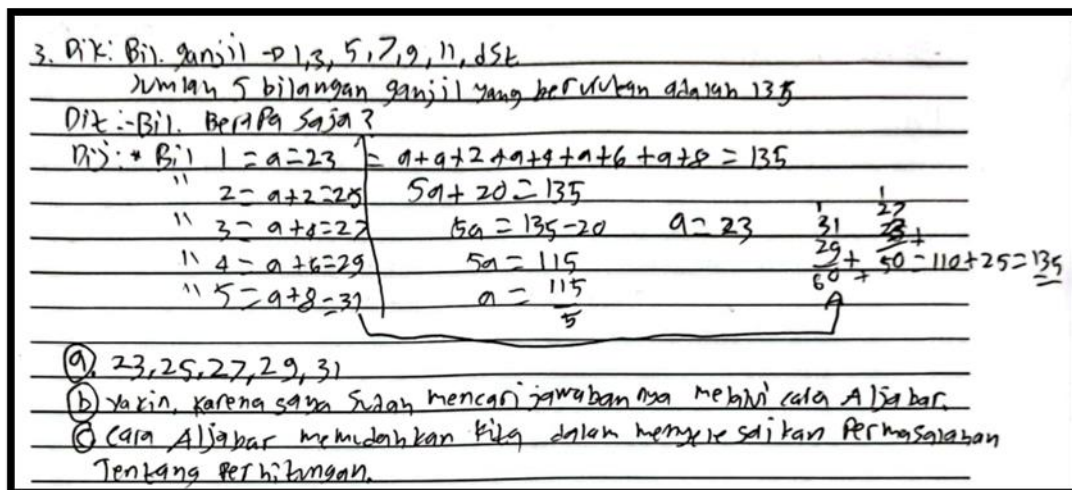 3. Dik: Bil. ganjil → 1,3, 5,7,9, 11, dst
Jumlah 5 bilangan ganjil yang berurutan adalah 135
Dit :- Bil. Berapa saja?
Dij: * Bil 1 = a = 23 = a+a+2+a+4+a+6+a+8 = 135
" 2 = a+2=25 5a+20=135
" 3 = a+4=27 5a = 135-20 a=23
" 4 = a+6=29 5a = 115
" 5 = a+8=31 a = 115/5
31 29 + 60
27 + 50 = 110+25=135
a. 23,25,27,29,31
b Yakin, karena saya sudah mencari jawabannya melalui cara Aljabar.
c Cara Aljabar memudahkan kita dalam menyelesaikan Permasalahan
Tentang Perhitungan.